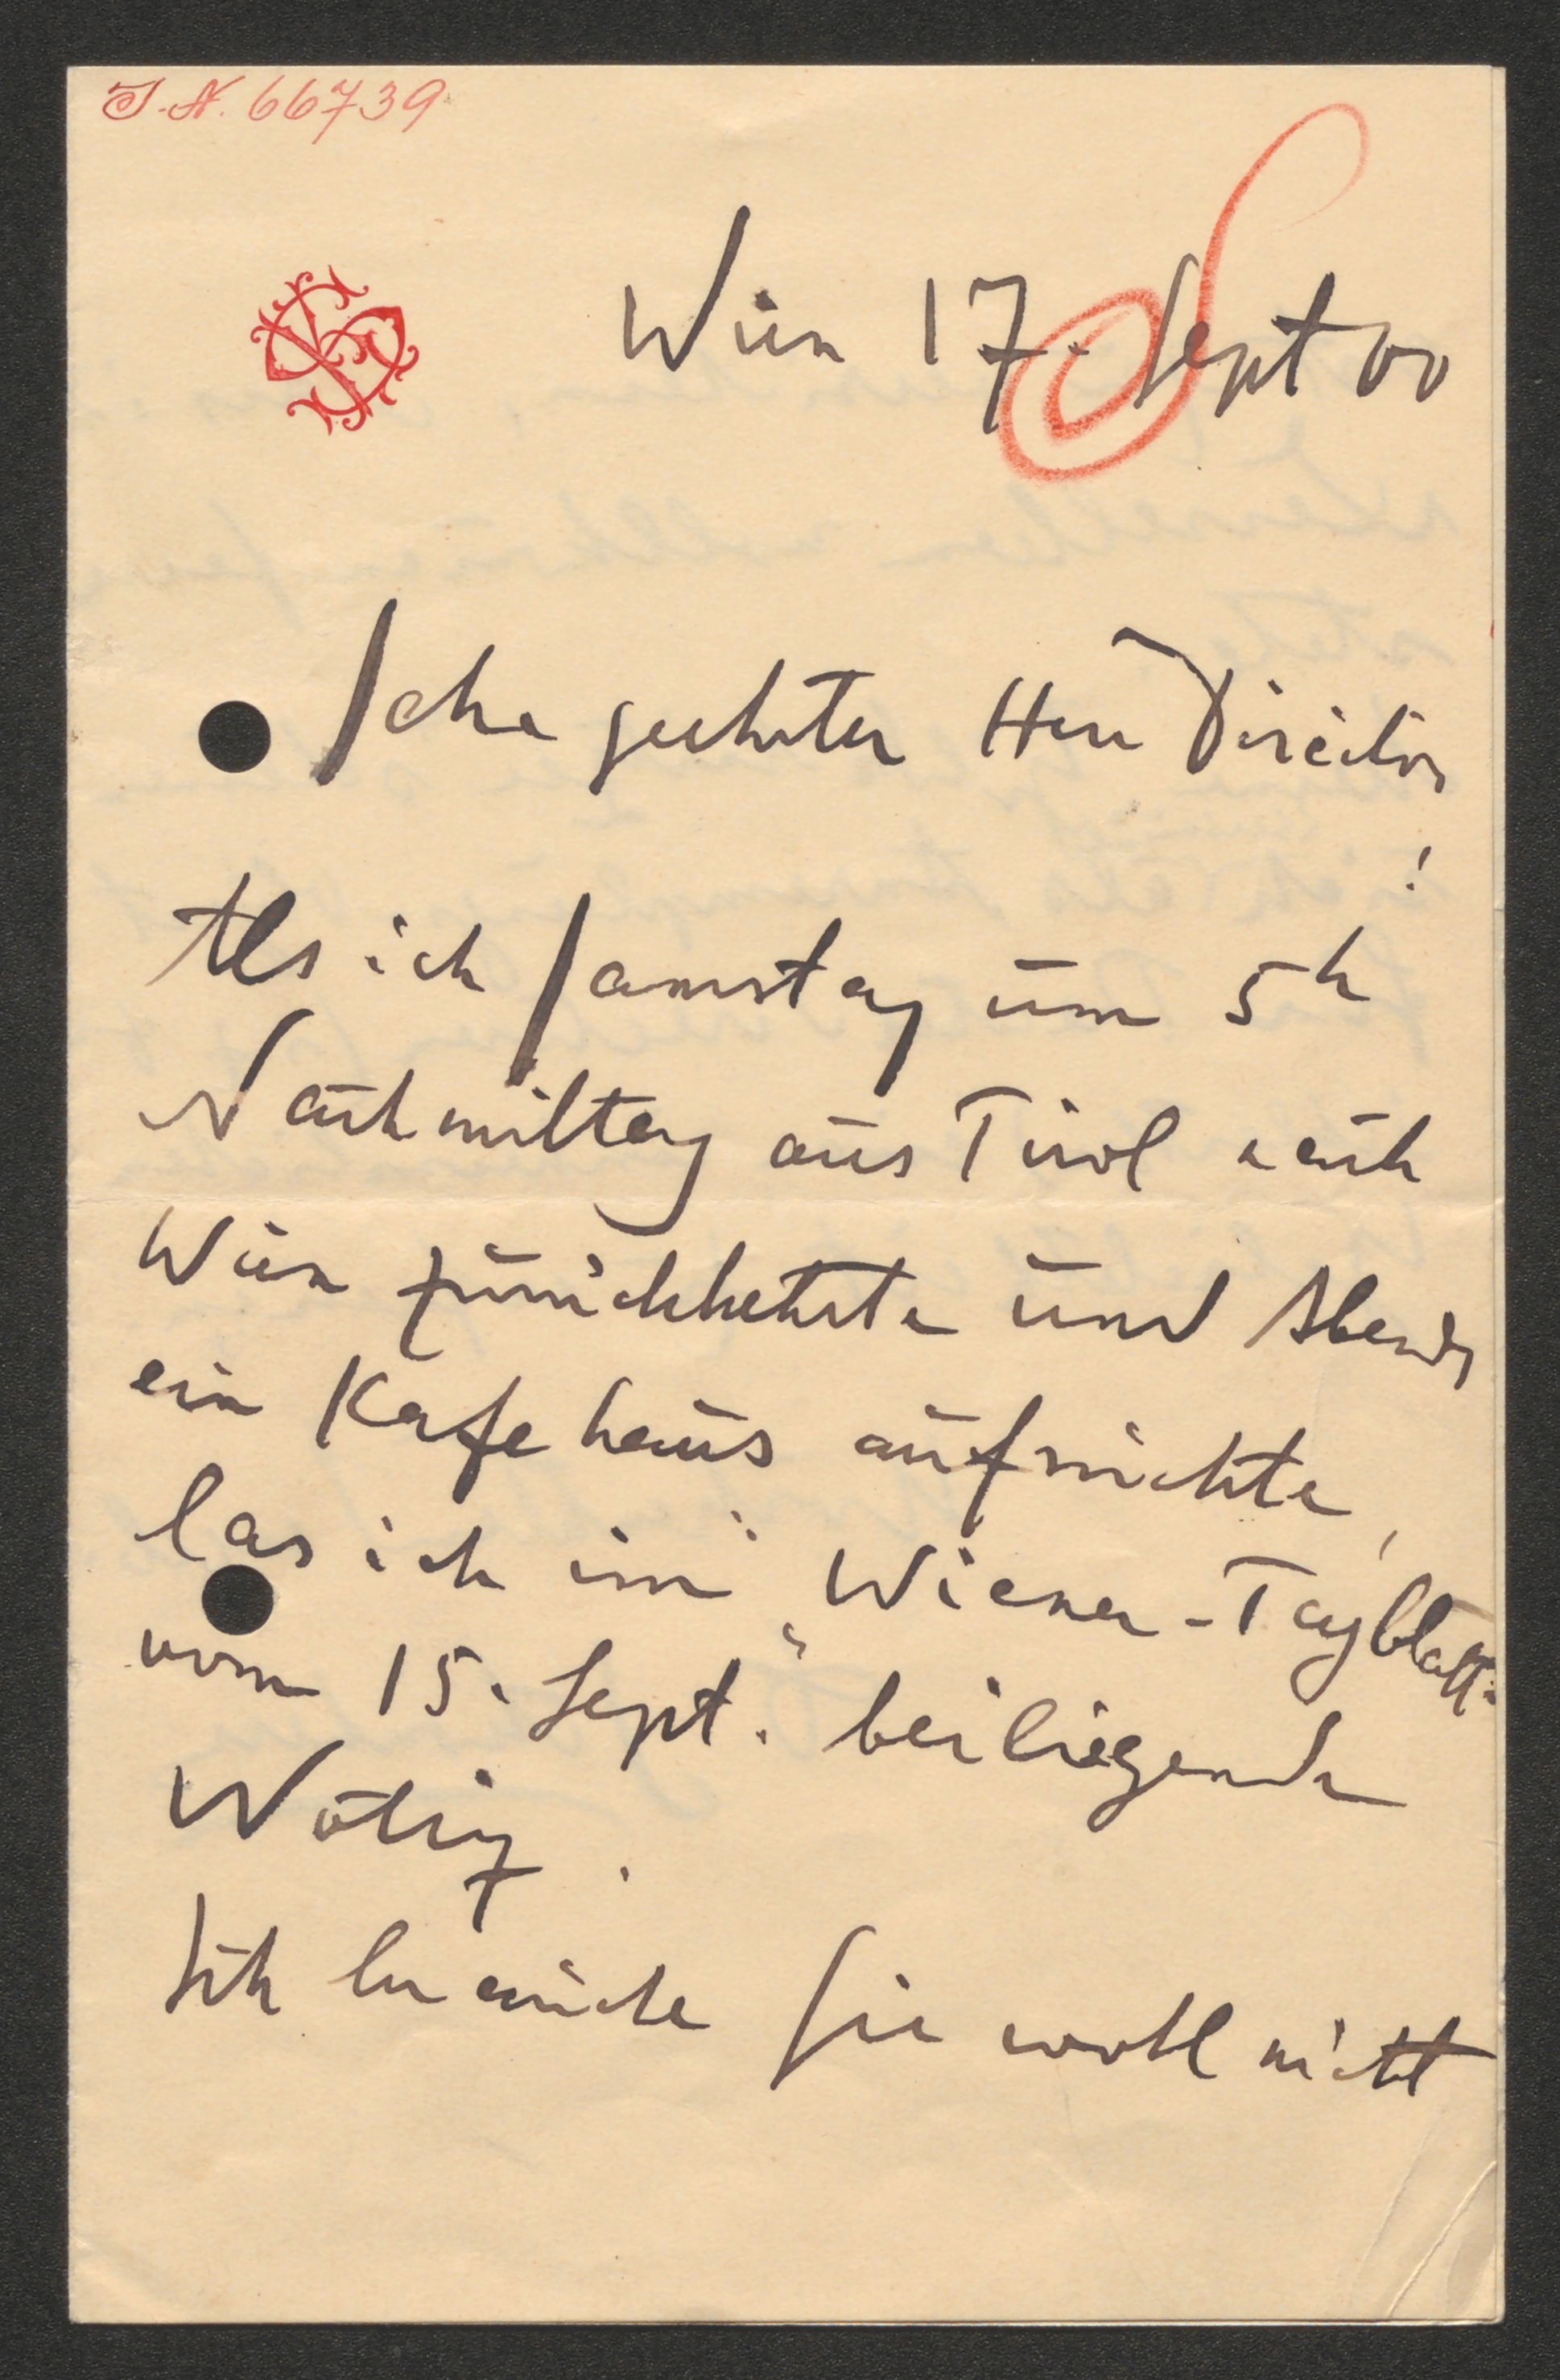 I.N. 66739
Wien 17. Sept 00
Sehr geehrter Herr Director
!
Als ich Samstag um 5h
Nachmittag aus Tirol nach
Wien zurückkehrte und Abends
ein Kafehaus aufsuchte,
las ich im "Wiener-Tagblatt"
vom 15. Sept." beiliegende
Notiz.
Ich brauche Sie wohl nicht